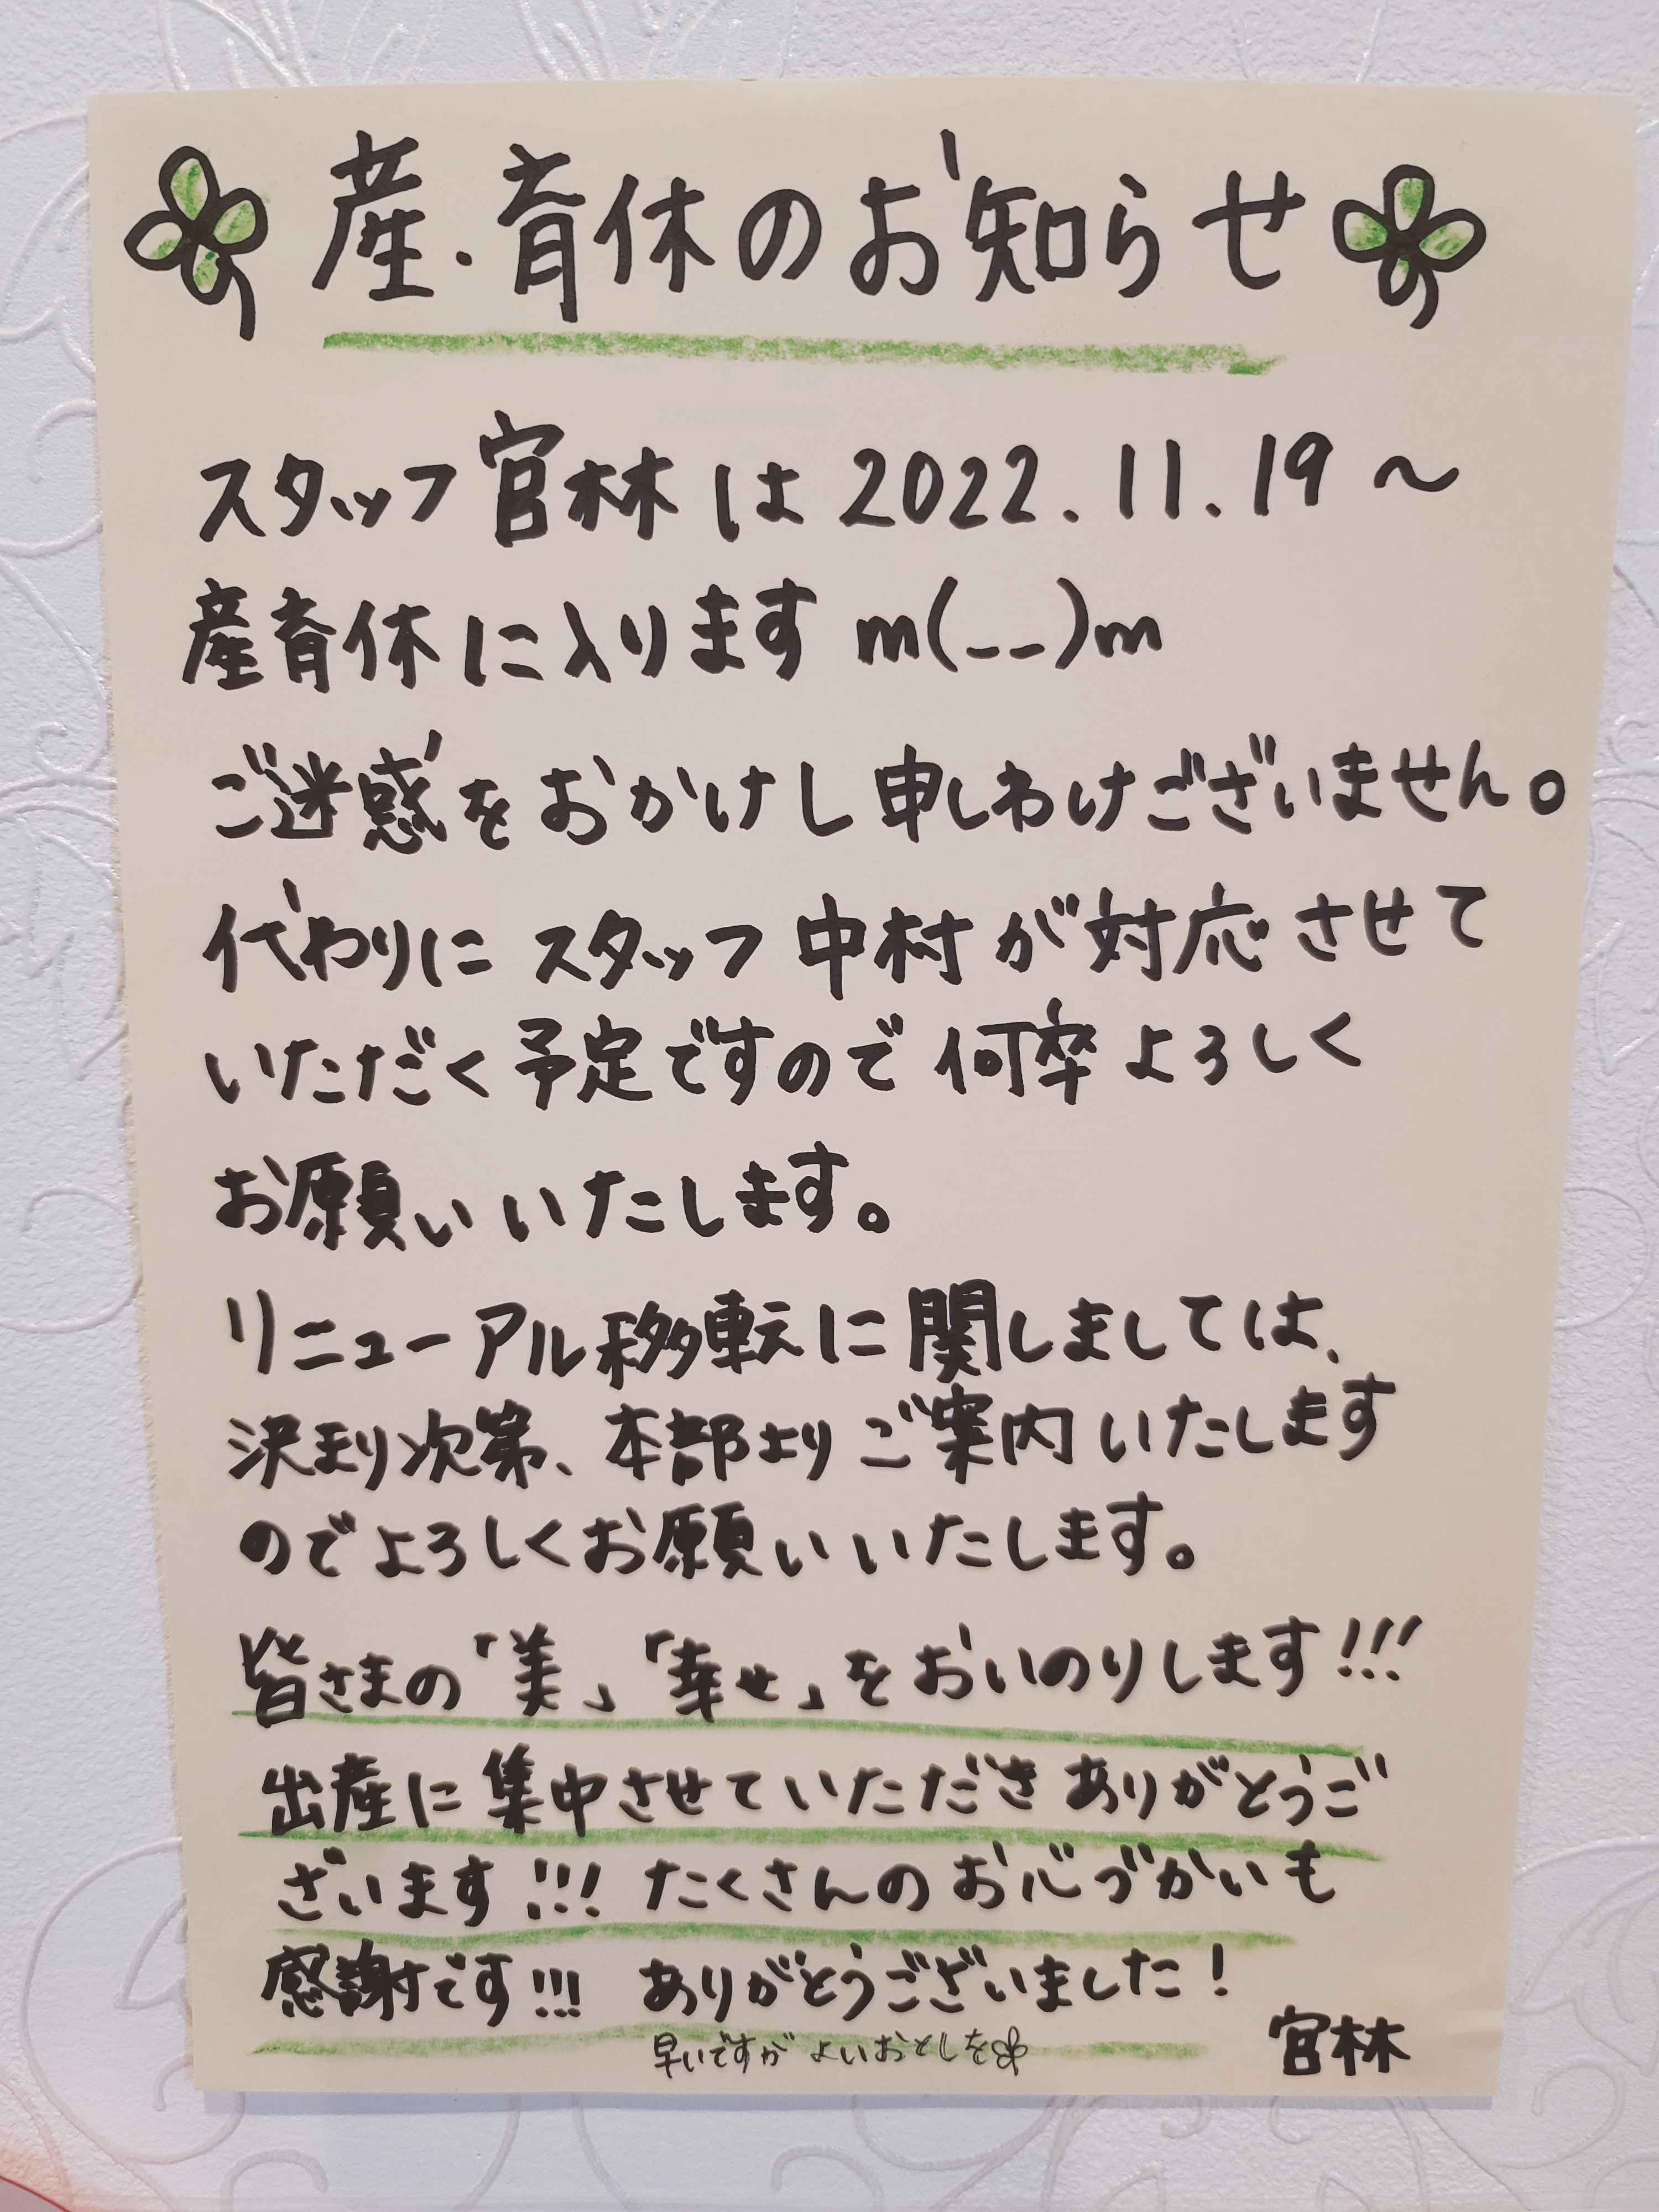 産・育休のお知らせ
スタッフ宮林は2022.11.19～
産育休に入りますm(__)m
ご迷惑をおかけし申しわけございません。
代わりにスタッフ中村が対応させて
いただく予定ですので何卒よろしく
お願いいたします。
リニューアル移転に関しましては、
決まり次第、本部よりご案内いたします
のでよろしくお願いいたします。
皆さまの「美」「幸せ」をおいのりします!!!
出産に集中させていただきありがとうご
ざいます!!! たくさんのお心づかいも
感謝です!!! ありがとうございました!
早いですがよいおとしを
宮林